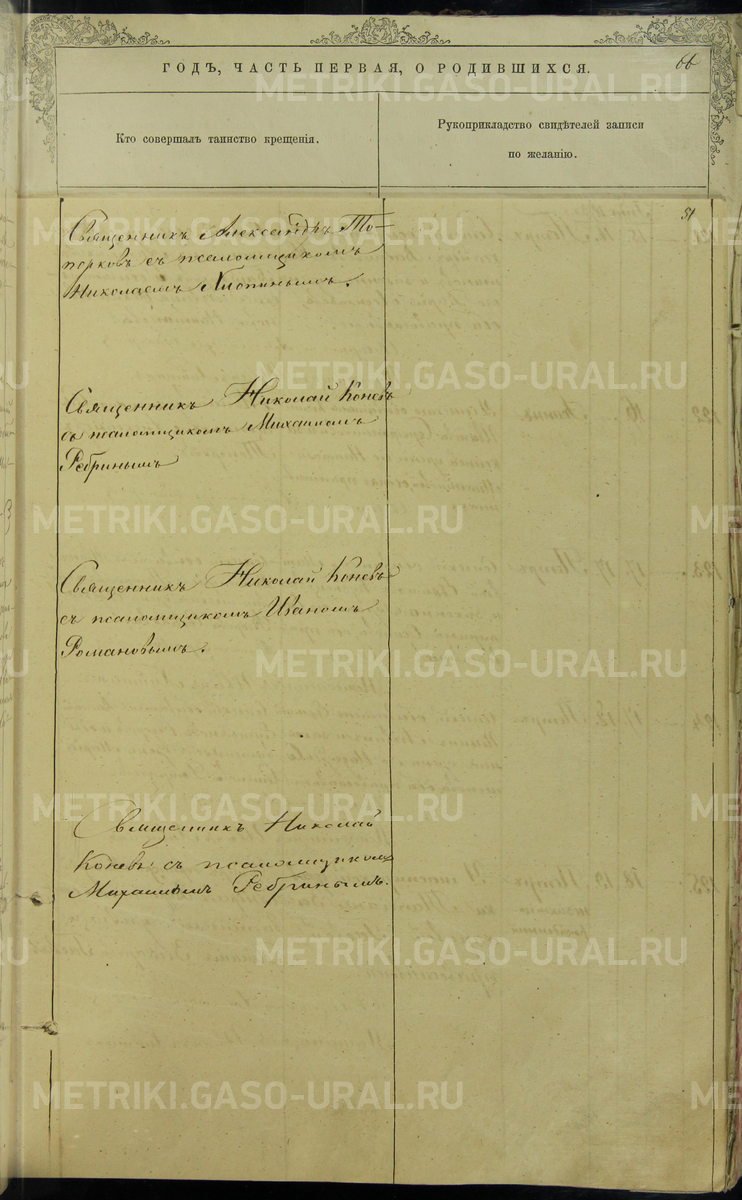 ГОДЪ, ЧАСТЬ ПЕРВАЯ, О РОДИВШИХСЯ.
66
Кто совершалъ таинство крещенія.
Рукоприкладство свидѣтелей записи
по желанію.
51
Священникъ Александръ То-
порковъ съ псаломщикомъ
Николаемъ Хлопинымъ.
Священникъ Николай Коневъ
съ псаломщикомъ Михаиломъ
Ребринымъ
Священникъ Николай Коневъ
съ псаломщикомъ Иваномъ
Романовымъ.
Священникъ Николай
Коневъ съ псаломщикомъ
Михаиломъ Ребринымъ.
METRIKI.GASO-URAL.RU